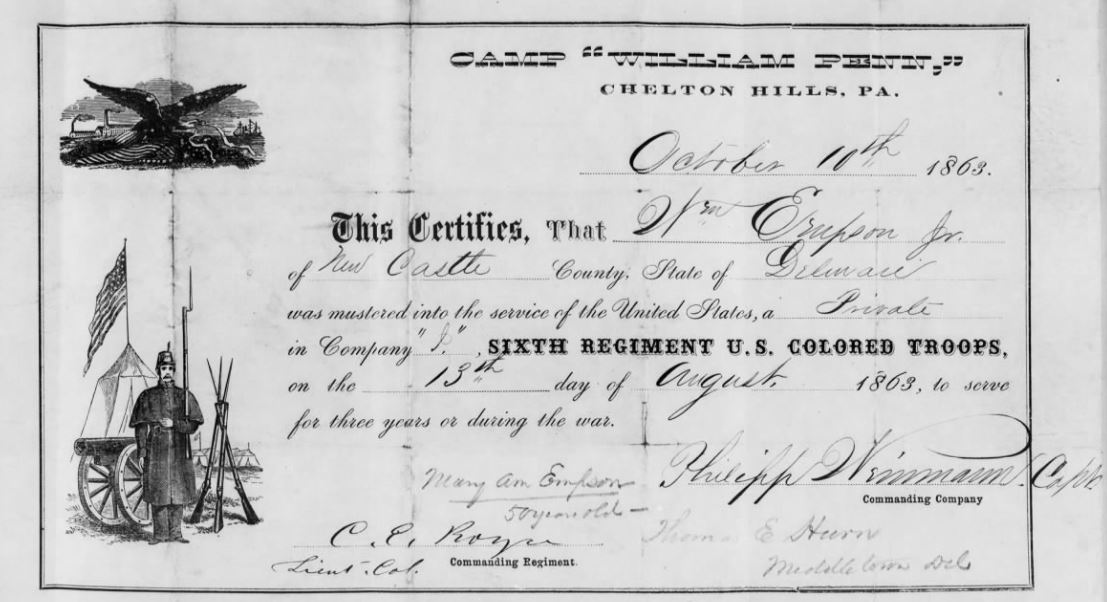 CAMP "WILLIAM PENN,"
CHELTON HILLS, PA.
October 10th 1863.
This Certifies, That Wm Empson Jr.
of New Castle County, State of Delware
was mustered into the service of the United States, a Private
in Company " ", SIXTH REGIMENT U.S. COLORED TROOPS,
on the 13th day of August. 1863, to serve
for three years or during the war.
Philipp Weinmann Capt.
Commanding Company
Mary Ann Empson
50 years old —
C. E. Royce
Lieut. Col. Commanding Regiment.
Thomas E Hurn
Middletown Del